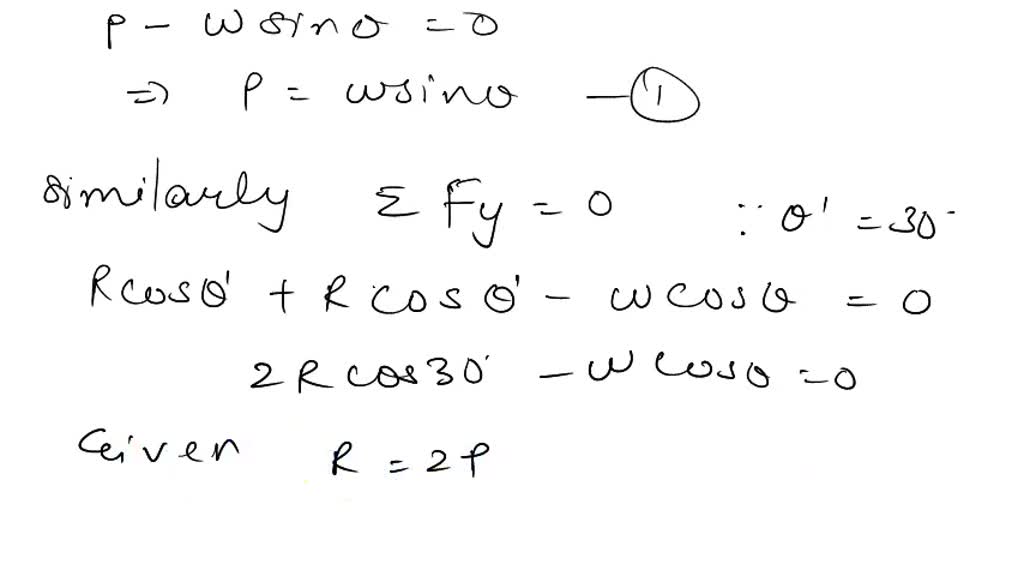 P - w sinθ = 0
⇒ P = w sinθ — ①
similarly Σ Fy = 0 ∵ θ' = 30°
R cosθ' + R cosθ' - w cosθ = 0
2R cos30° - w cosθ = 0
Given R = 2P